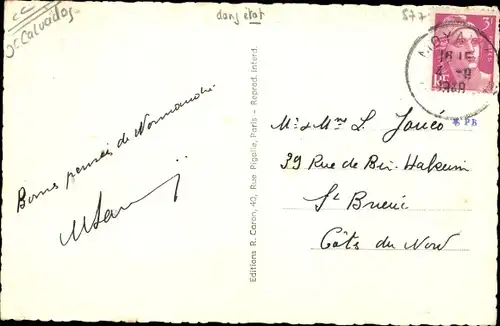 Dt Calvados
dans état
577
MOYA
16 15
4 - 8
3F
RF
Bonnes pensées de Normandie
Editions R. Caron, 40, Rue Pigalle, Paris - Reprod. Interd.
PB
Mr & Mme L. Jouéo
39 Rue de Bir-Hakeim
St Brieuc
Côts du Nord